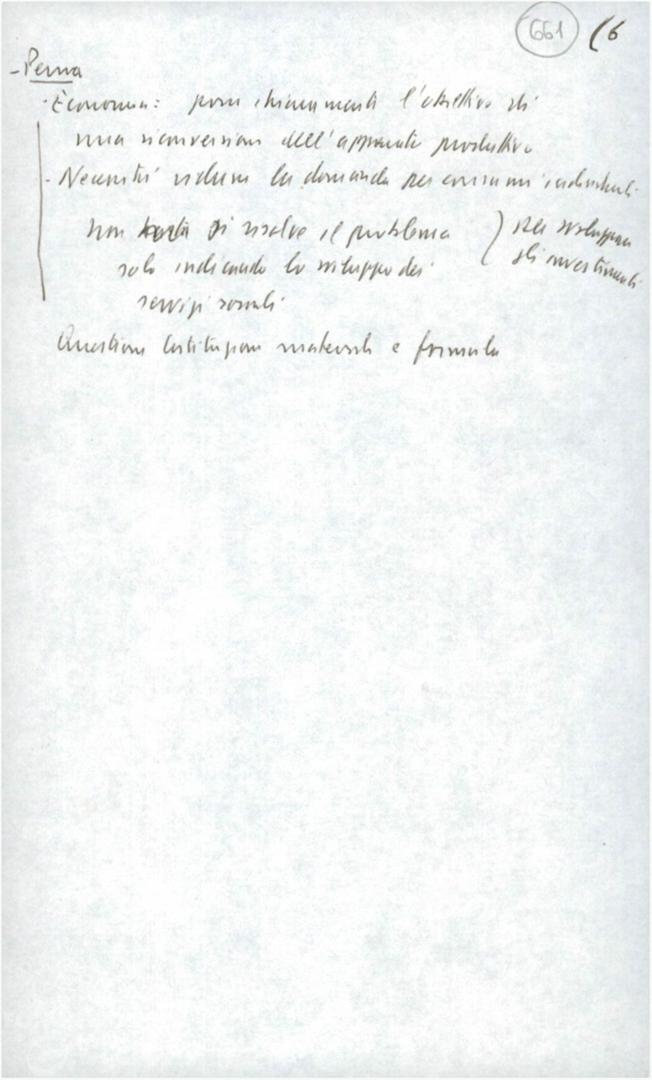 661 (6
- Perna
· Economia: porsi chiaramente l'obiettivo di
una riconversione dell'apparato produttivo
- Necessità ridurre la domanda per consumi individuali
non si risolve il problema
solo indicando lo sviluppo dei
servizi sociali
) per sviluppare
gli investimenti
Questione Costituzione materiale e formale